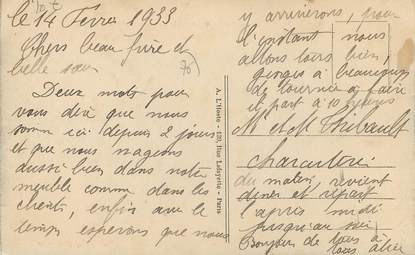 le 14 Févri 1933
Chers beau frère et
belle sœur
Deux mots pour
vous dire que nous
somm ici depuis 2 jours
et que nous nageons
aussi bien dans notre
meuble comme dans les
clients, enfin avec le
temps esperons que nous
A. L'Hoste - 130, Rue Lafayette - Paris
y arriverons, pour
l'instant nous
allons tous bien,
georges a beaucoup
de tournée a faire
il part a 10 heures
M. et M. Thibault
charcuterie
du matin, revient
diner et repart
l'après midi
jusqu'au soir
Bonjour de tous à
tous